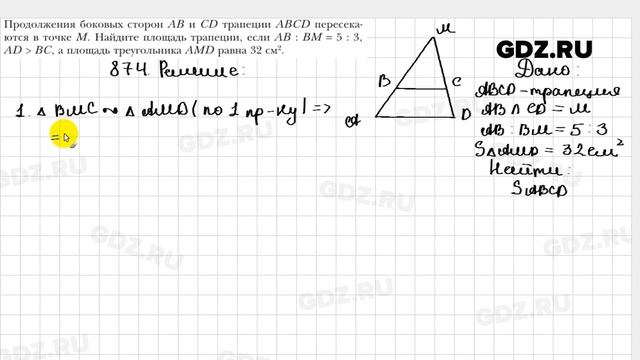 Продолжения боковых сторон AB и CD трапеции ABCD пересека-
ются в точке M. Найдите площадь трапеции, если AB : BM = 5 : 3,
AD > BC, а площадь треугольника AMD равна 32 см².
GDZ.RU
874. Решение:
Дано:
1. △ BMC ~ △ AMD (по 1 пр-ку) =>
=
M
B
C
A
D
ABCD - трапеция
AB ∩ CD = M
AB : BM = 5 : 3
S△AMD = 32 см²
Найти:
SABCD
GDZ.RU
GDZ.RU
GDZ.RU
GDZ.RU
GDZ.RU
GDZ.RU